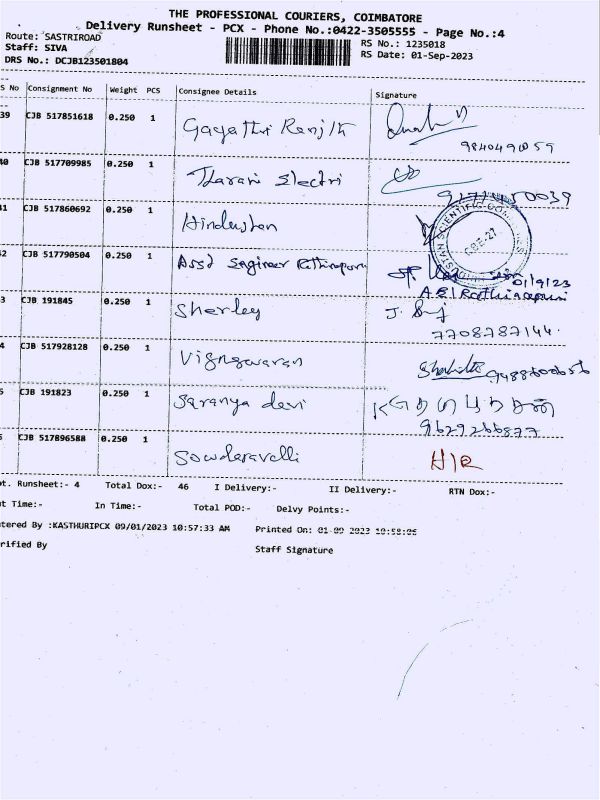 THE PROFESSIONAL COURIERS, COIMBATORE
Delivery Runsheet - PCX - Phone No.:0422-3505555 - Page No.:4
Route: SASTRIROAD
RS No.: 1235018
Staff: SIVA
RS Date: 01-Sep-2023
DRS No.: DCJB123501804
S No Consignment No Weight PCS Consignee Details Signature
39 CJB 517851618 0.250 1 Gayathri Ranjith
40 CJB 517709985 0.250 1 Tharani Electri
41 CJB 517860692 0.250 1 Hindusthan
CBE-27
42 CJB 517790504 0.250 1 Asst Engineer Rathinapuri 01/9/23
3 CJB 191845 0.250 1 Sherley J.
7708787144.
4 CJB 517928128 0.250 1 Vigneswaran
5 CJB 191823 0.250 1 Saranya devi
9629266877
6 CJB 517896588 0.250 1 Sowderavalli H/R
t. Runsheet:- 4 Total Dox:- 46 I Delivery:- II Delivery:- RTN Dox:-
t Time:- In Time:- Total POD:- Delvy Points:-
tered By :KASTHURIPCX 09/01/2023 10:57:33 AM Printed On: 01-09-2023 10:58:06
rified By Staff Signature